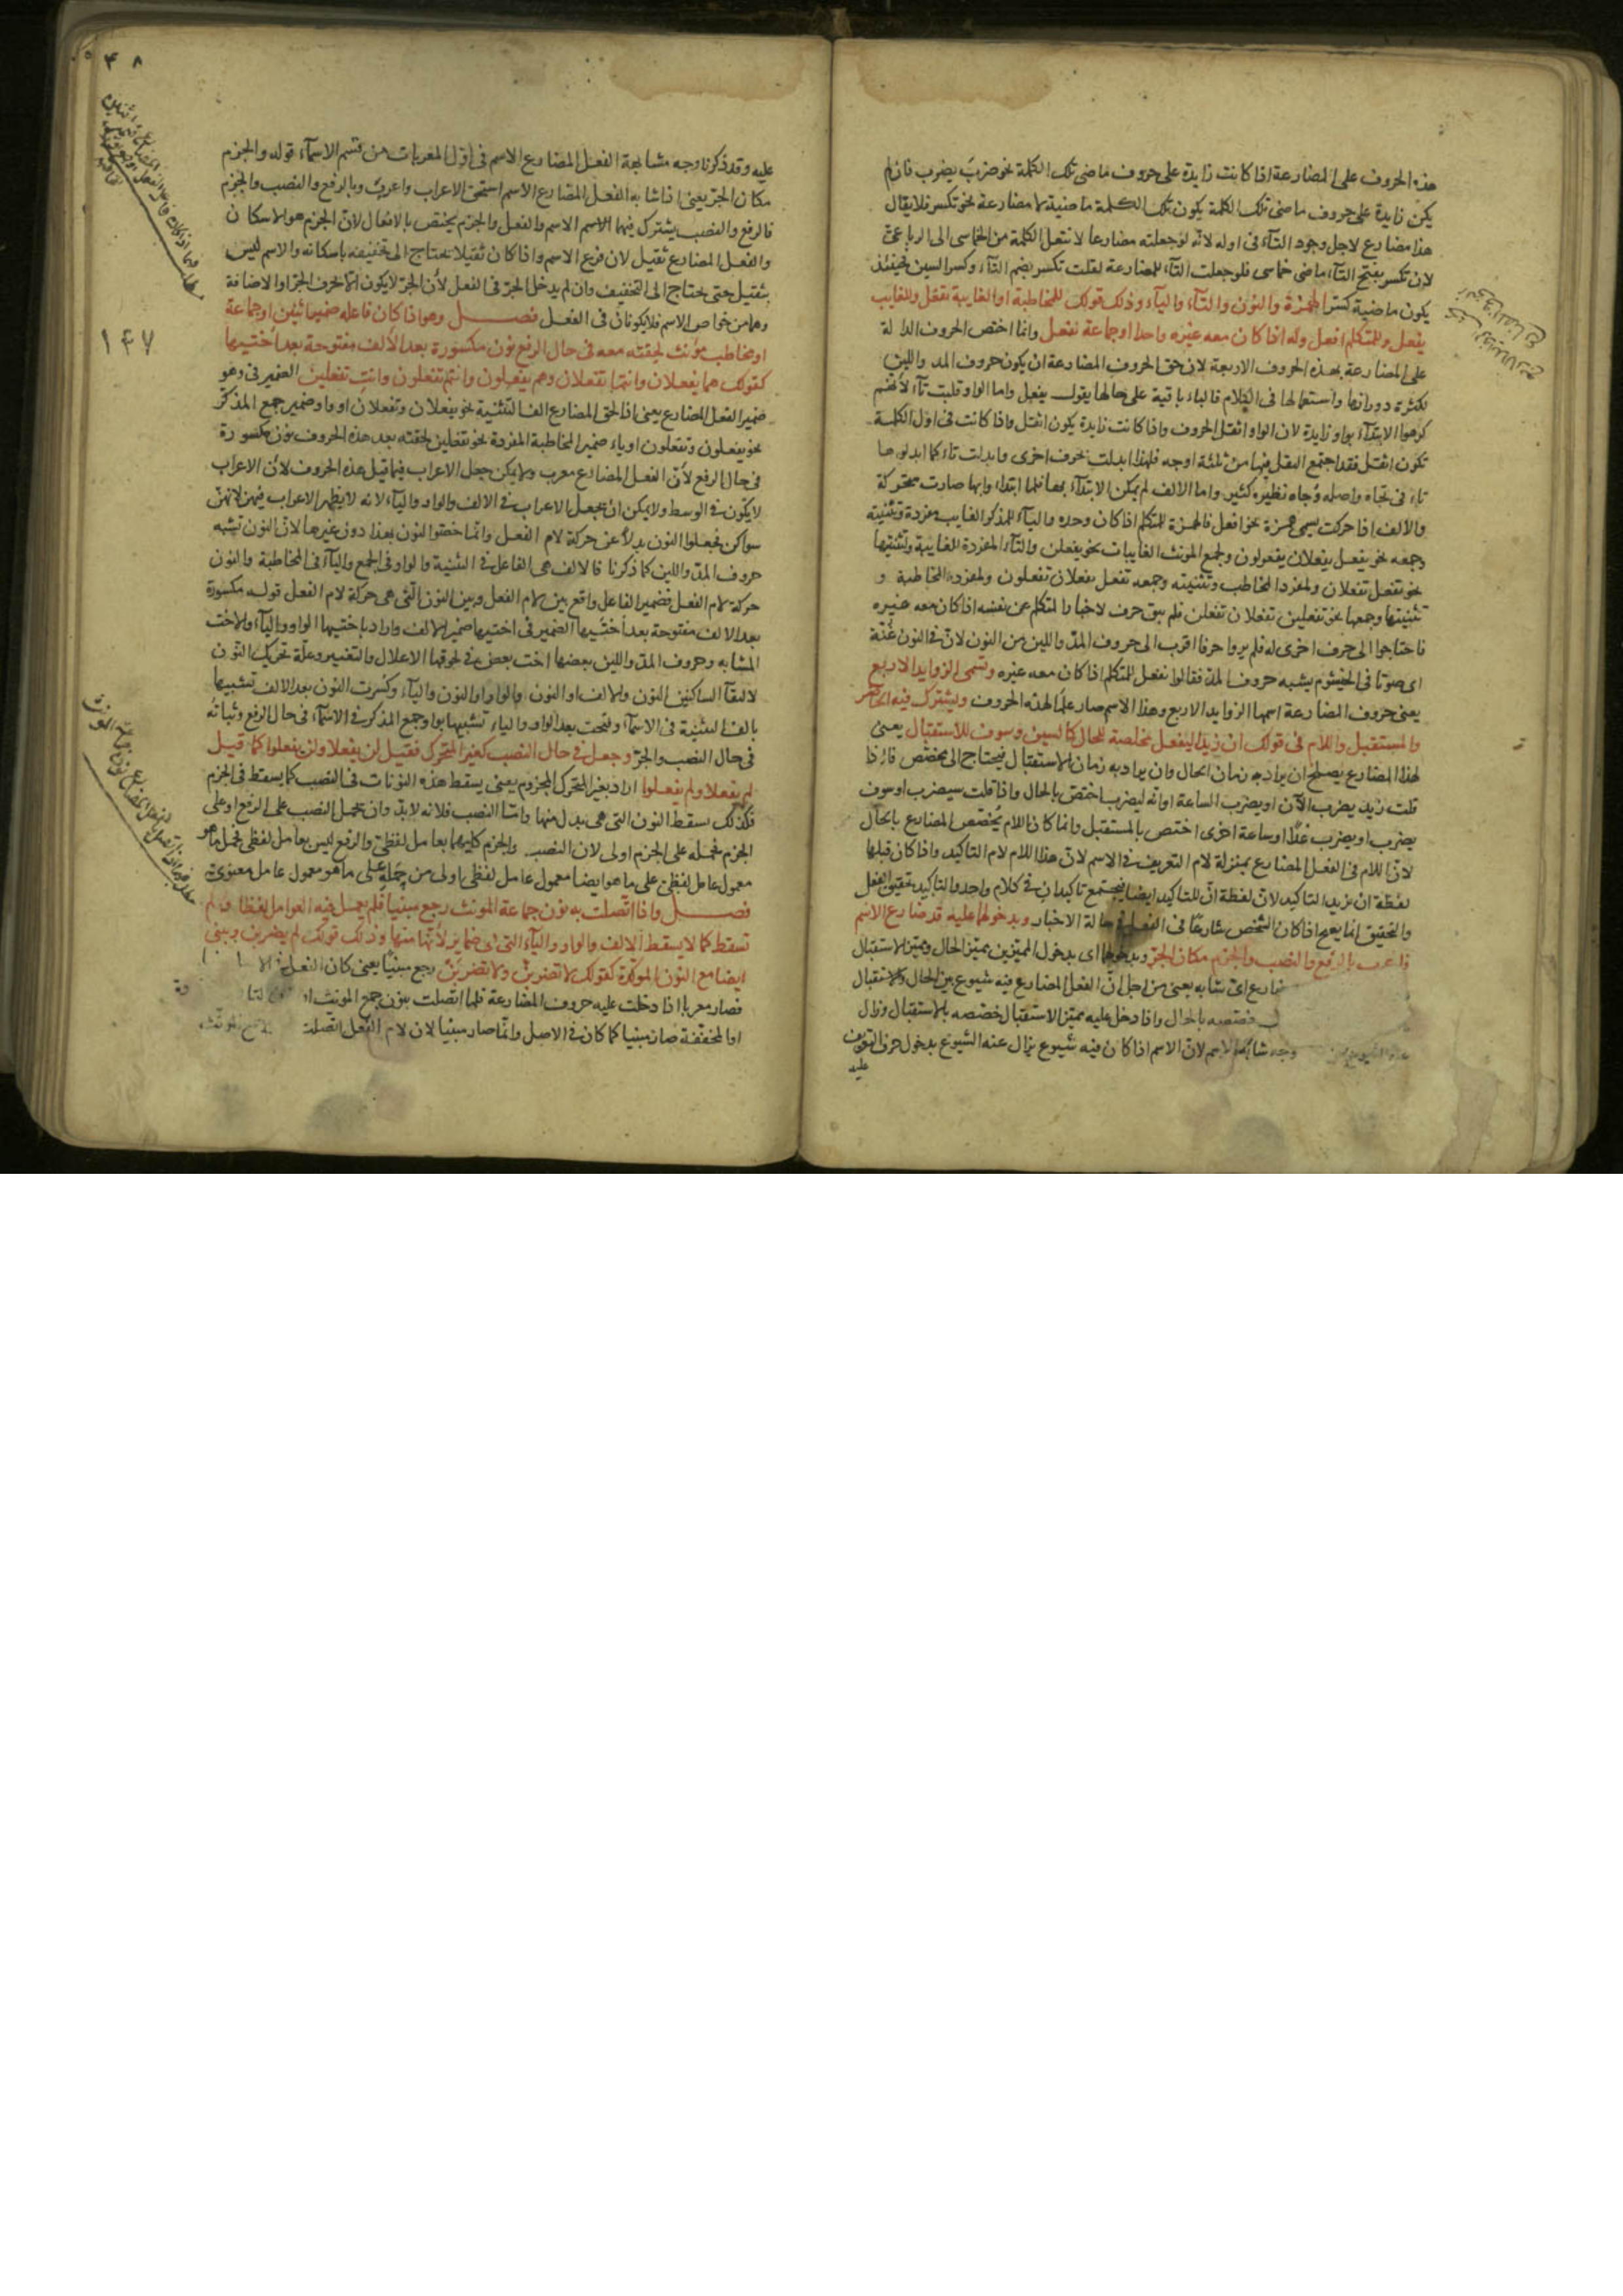 هذه الحروف على المضارعة اذا كانت زايدة على حروف ماضى تلك الكلمة نحو ضرب يضرب فان لم
يكن زايدة على حروف ماضى تلك الكلمة يكون تلك الكلمة ماضية لا مضارعة نحو تكسر فلا يقال
هذا مضارع لاجل وجود التآء فى اوله لانه لو جعلته مضارعا لانتقل الكلمة من الخماسى الى الرباعى
لان تكسر بفتح التآء ماضى خماسى فلو جعلت التآء للمضارعة لقلت تكسر بضم التآء وكسر السين فحينئذ
يكون ماضية كسر الهمزة والنون والتآء واليآء وذلك قولك للمخاطبة او الغايبة تفعل وللغايب
يفعل وللمتكلم افعل وله اذا كان معه غيره واحدا او جماعة نفعل وانما اختص الحروف الدالة
على المضارعة بهذه الحروف الاربعة لان حق الحروف المضارعة ان يكون حروف المد واللين
لكثرة دورانها واستعمالها فى الكلام فالياء باقية على حالها يقول يفعل واما الواو قلبت تآء لانهم
كرهوا الابتدآء بواو زايدة لان الواو اثقل الحروف واذا كانت زايدة يكون اثقل واذا كانت فى اول الكلمة
تكون اثقل فقد اجتمع الثقل فيها من ثلثة اوجه فلهذا ابدلت بحرف اخرى وابدلت تاء كما ابدلوها
تاء فى تجاه واصله وجاه نظيره كثير واما الالف لم يمكن الابتدآء بها فلما ابتداء وابها صارت متحركة
والالف اذا حركت يسمى همزة نحو افعل فالهمزة للمتكلم اذا كان وحده واليآء للمذكر الغايب مفردة وتثنيته
وجمعه نحو يفعل يفعلان يفعلون ولجمع المونث الغايبات نحو يفعلن والتآء لمفردة الغايبة وتثنيتها
نحو تفعل تفعلان ولمفرد المخاطب وتثنيته وجمعه تفعل تفعلان تفعلون ولمفردة المخاطبة و
تثنيتها وجمعها نحو تفعلين تفعلان تفعلن فلم يبق حرف لاخبار المتكلم عن نفسه اذا كان معه غيره
فاحتاجوا الى حرف اخرى له فلم يروا حرفا اقرب الى حروف المد واللين من النون لان فى النون غنة
اى صوتا فى الخيشوم يشبه حروف المد فقالوا نفعل للمتكلم اذا كان معه غيره وتسمى الزوايد الاربع
يعنى حروف المضارعة اسمها الزوايد الاربع وهذا الاسم صار علما لهذه الحروف ويشترك فيه الحاضر
والمستقبل واللام فى قولك ان زيدا ليفعل مخلصة للحال كالسين وسوف للاستقبال يعنى
لهذا المضارع يصلح ان يراد به زمان الحال وان يراد به زمان الاستقبال فيحتاج الى مخصص فاذا
قلت زيد يضرب الآن او يضرب الساعة او انه ليضرب اختص بالحال واذا قلت سيضرب او سوف
يضرب او يضرب غدا او ساعة اخرى اختص بالمستقبل وانما كان اللام يخصص المضارع بالحال
لان اللام فى الفعل المضارع بمنزلة لام التعريف فى الاسم لان هذا اللام لام التاكيد واذا كان قبلها
لفظة ان يزيد التاكيد لان لفظة ان للتاكيد ايضا فيجتمع تاكيدان فى كلام واحد والتاكيد تحقيق الفعل
والتحقيق انما يصح اذا كان الشخص شارعا فى الفعل فى حالة الاخبار وبدخولها عليه قد ضارع الاسم
فاعرب بالرفع والنصب والجزم مكان الجر وبدخولها اى بدخول المميزين مميز الحال ومميز الاستقبال
ضارع اى شابه يعنى من اجل ان الفعل المضارع فيه شيوع بين الحال والاستقبال
فتخصه بالحال واذا دخل عليه مميز الاستقبال خصصه بالاستقبال وزال
وجه شابه الاسم لان الاسم اذا كان فيه شيوع يزال عنه الشيوع بدخول حرف التعريف
عليه
عليه وقد ذكرنا وجه مشابهة الفعل المضارع الاسم فى اول المعربات من قسم الاسمآء قوله والجزم
مكان الجر يعنى اذا شابه الفعل المضارع الاسم استحق الاعراب واعرب وبالرفع والنصب والجزم
فالرفع والنصب يشترك فيهما الاسم والفعل والجزم يختص بالافعال لان الجزم هو الاسكان
والفعل المضارع ثقيل لان فرع الاسم واذا كان ثقيلا يحتاج الى تخفيفه باسكانه والاسم ليس
بثقيل حتى يحتاج الى التخفيف وان لم يدخل الجر فى الفعل لان الجر لا يكون الا بحرف الجر او الاضافة
وهما من خواص الاسم فلا يكونان فى الفعل فصل وهو اذا كان فاعله ضمير اثنين او جماعة
او مخاطب مؤنث لحقته معه فى حال الرفع نون مكسورة بعد الالف مفتوحة بعد اختيها
كقولك هما يفعلان وانتما تفعلان وهم يفعلون وانتم تفعلون وانت تفعلين الضمير فى وهو
ضمير الفعل المضارع يعنى اذا لحق المضارع الف التثنية نحو يفعلان وتفعلان او واو ضمير جمع المذكر
نحو يفعلون وتفعلون او ياء ضمير المخاطبة المفردة نحو تفعلين لحقته بعد هذه الحروف نون مكسورة
فى حال الرفع لان الفعل المضارع معرب ولا يمكن جعل الاعراب فيما قبل هذه الحروف لان الاعراب
لا يكون فى الوسط ولا يمكن ان يجعل الاعراب فى الالف والواو واليآء لانه لا يظهر الاعراب فيهن لانهن
سواكن فجعلوا النون بدلا عن حركة لام الفعل وانما خصوا النون بهذا دون غيرها لان النون تشبه
حروف المد واللين كما ذكرنا فالالف هى الفاعل فى التثنية والواو فى الجمع واليآء فى المخاطبة والنون
حركة لام الفعل فضمير الفاعل واقع بين لام الفعل وبين النون التى هى حركة لام الفعل قوله مكسورة
بعد الالف مفتوحة بعد اختيها الضمير فى اختيها ضمير الالف واراد باختيها الواو واليآء والاخت
المشابه وحروف المد واللين بعضها اخت بعض فى لحوقها الاعلال والتغيير وعلة تحريك النون
لالتقآ الساكنين النون والالف او النون والواو او النون واليآء وكسرت النون بعد الالف تشبيها
بالف التثنية فى الاسمآء وفتحت بعد الواو والياء تشبيها بواو جمع المذكر فى الاسمآء فى حال الرفع وثباته
فى حال النصب والجر وجعل فى حال النصب كغير المتحرك فقيل لن يفعلا ولن يفعلوا كما قيل
لم يفعلا ولم يفعلوا اراد بغير المتحرك المجزوم يعنى يسقط هذه النونات فى النصب كما يسقط فى الجزم
فكذلك سقط النون التى هى بدل منها واما النصب فلانه لا بد وان يحمل النصب على الرفع او على
الجزم فحمله على الجزم اولى لان النصب والجزم كليهما بعامل لفظى والرفع ليس بعامل لفظى فحمل ما هو
معمول عامل لفظى على ما هو ايضا معمول عامل لفظى اولى من حمله على ما هو معمول عامل معنوى
فصل واذا اتصلت به نون جماعة المونث رجع مبنيا فلم يعمل فيه العوامل لفظا ولم
تسقط كما لا يسقط الالف والواو واليآء التى هى ضماير لانها منها وذلك قولك لم يضربن ويبنى
ايضا مع النون المؤكدة كقولك لا تضربن ولا تضربن رجع مبنيا يعنى كان الفعل فى الا
فصار معربا اذا دخلت عليه حروف المضارعة فلما اتصلت بنون جمع المونث او
او المخففة صار مبنيا كما كان فى الاصل وانما صار مبنيا لان لام الفعل اتصلت
١٤٧